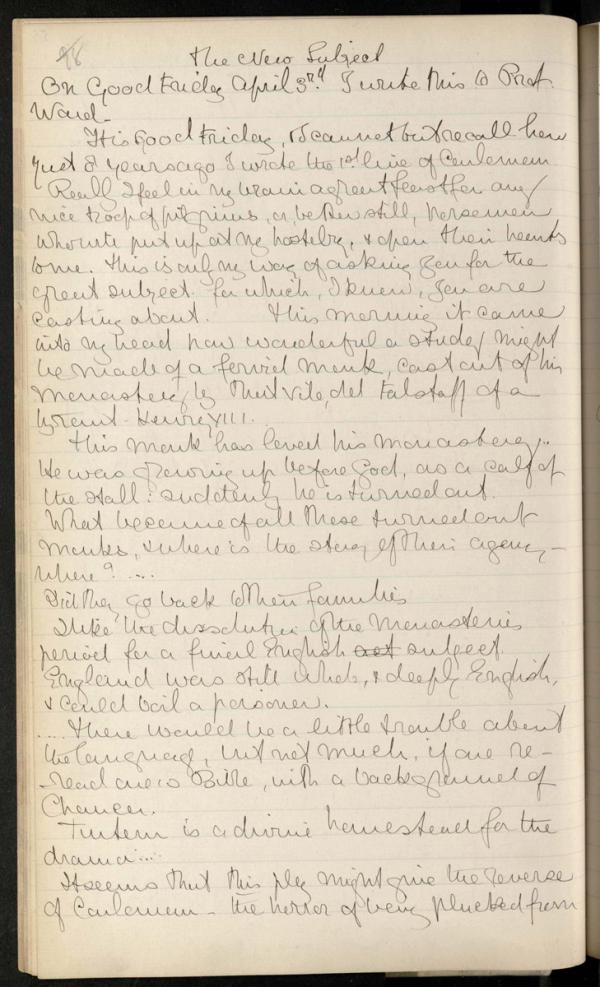 The New Subject
On Good Friday April 3rd I write this to Prof.
Ward.
It is Good Friday, & I cannot but recall how
just 8 years ago I wrote the 1st line of Carloman
Really I feel in my brain a great feast for any
nice troop of pilgrims, or better still, horsemen
who will put up at my hostelry, & open their hearts
to me. This is only my way of asking you for the
great subject for which, I know, you are
casting about. This morning it came
into my head how wonderful a study might
be made of a fervid monk, cast out of his
Monastery by that vile, del Falstaff of a
tyrant Henry VIII.
This monk has loved his monastery..
He was growing up before God, as a calf of
the stall: suddenly he is turned out.
What became of all these turned out
monks, & where is the story of their agony –
where? ....
Did they go back to their families
I like the dissolution of the Monasteries
period for a final English subject.
England was still whole, & deeply English,
& could boil a poisoner.
.... There would be a little trouble about
the language, but not much, if one re-
-read one's Bible, with a background of
Chaucer.
Tintern is a divine homestead for the
drama ....
It seems that this play might give the reverse
of Carloman – the horror of being plucked from